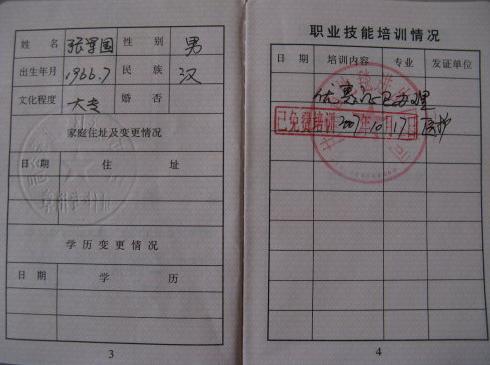 姓 名 张军国 性 别 男
出生年月 1966.7 民 族 汉
文化程度 大专 婚 否
家庭住址及变更情况
日 期 住 址
学历变更情况
日 期 学 历
3
职业技能培训情况
日 期 培训内容 专业 发证单位
优惠证已办理
已免费培训 2007年10月17日
4